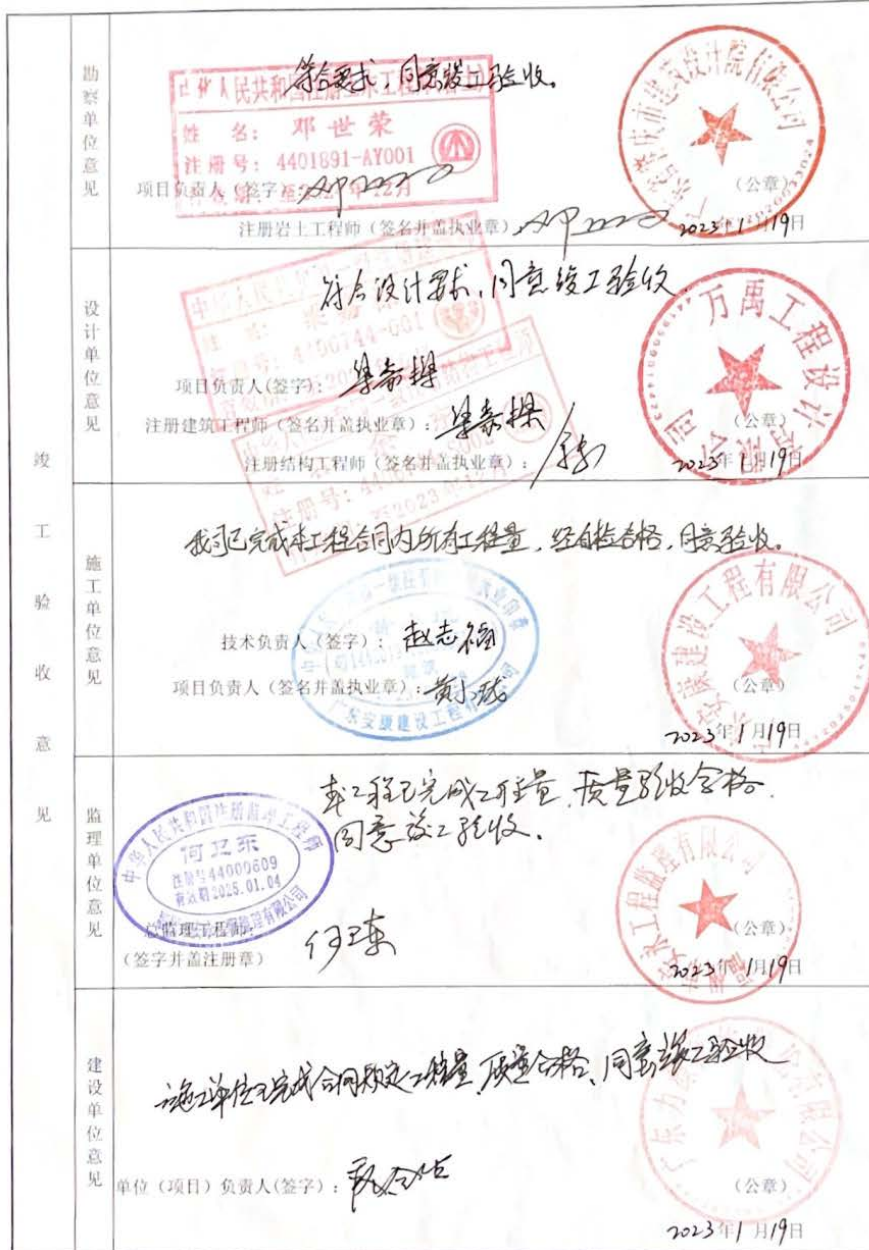 竣工验收意见
勘察单位意见
符合要求，同意竣工验收。
中华人民共和国注册土木工程师(岩土)
姓 名： 邓世荣
注册号：4401891-AY001
项目负责人（签字）：
注册岩土工程师（签名并盖执业章）
肇庆市建筑设计院有限公司
（公章）
2023年1月19日
设计单位意见
符合设计要求，同意竣工验收
项目负责人(签字)：梁嘉
注册建筑工程师（签名并盖执业章）：梁嘉
注册结构工程师（签名并盖执业章）：
万禹工程设计有限公司
（公章）
2023年1月19日
施工单位意见
我司已完成本工程合同内所有工程量，经自检合格，同意验收。
技术负责人（签字）：赵志
项目负责人（签名并盖执业章）：黄
广东安康建设工程有限公司
（公章）
2023年1月19日
监理单位意见
本工程已完成工程量，质量验收合格。
同意竣工验收。
中华人民共和国注册监理工程师
何卫东
注册号44000609
有效期2025.01.04
总监理工程师：
（签字并盖注册章） 何卫东
工程监理有限公司
（公章）
2023年1月19日
建设单位意见
施工单位已完成合同规定工程量，质量合格、同意竣工验收
单位（项目）负责人(签字)：
（公章）
2023年1月19日